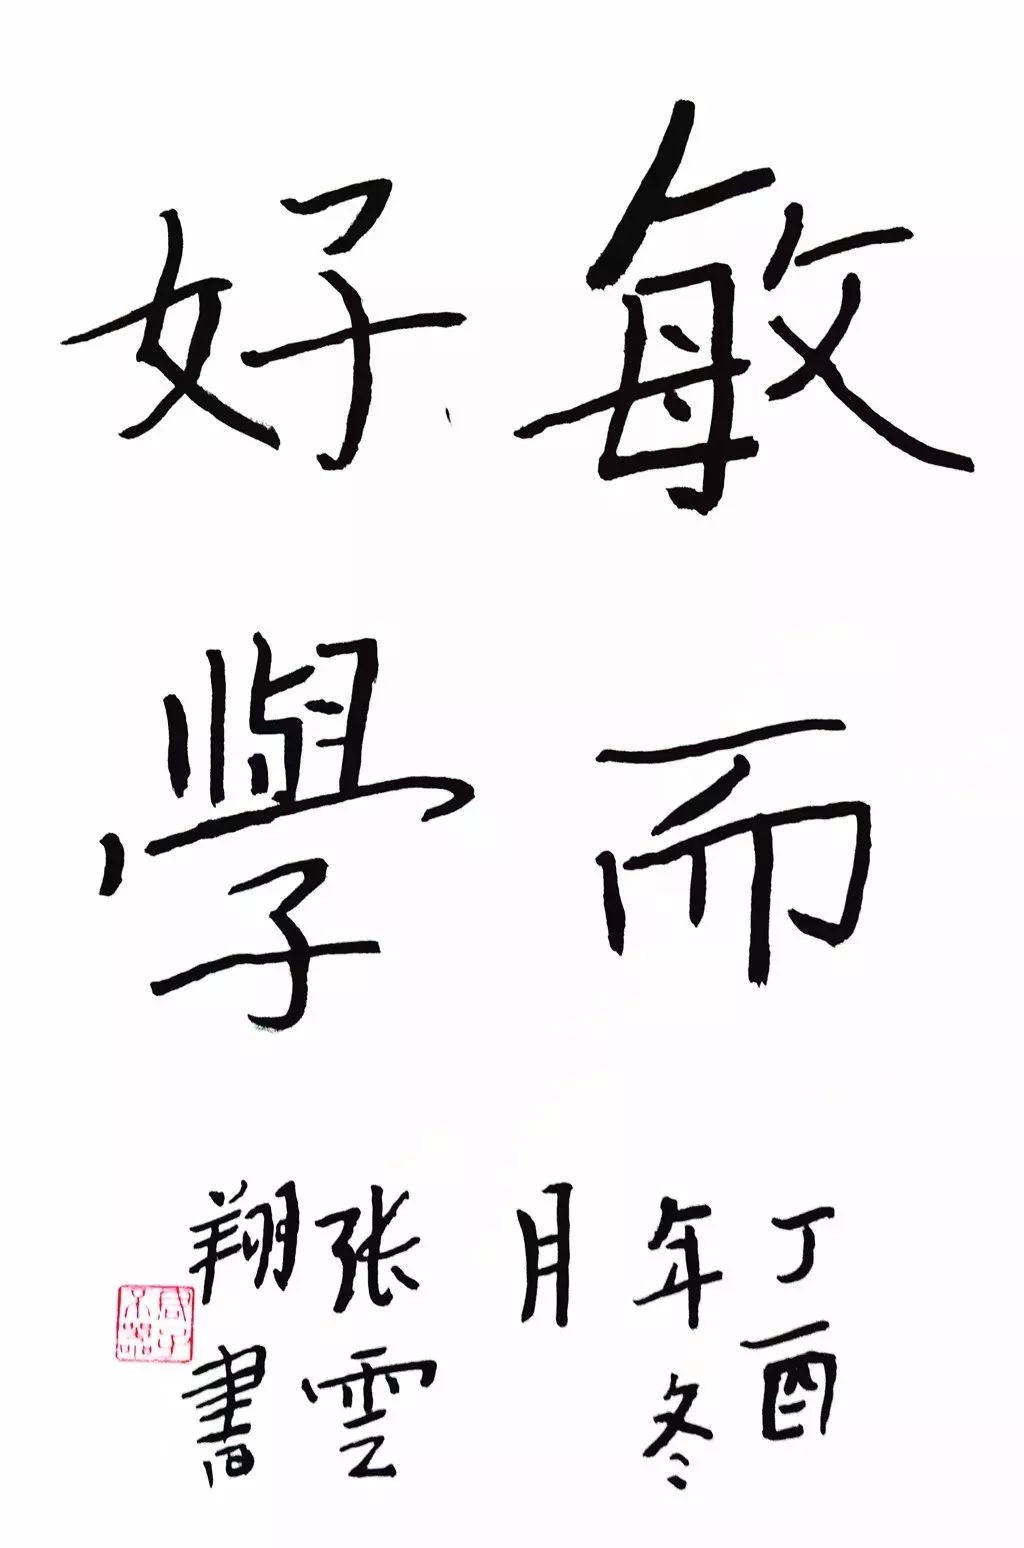 敏而
好學
丁酉
年冬
月
张雲
翔書